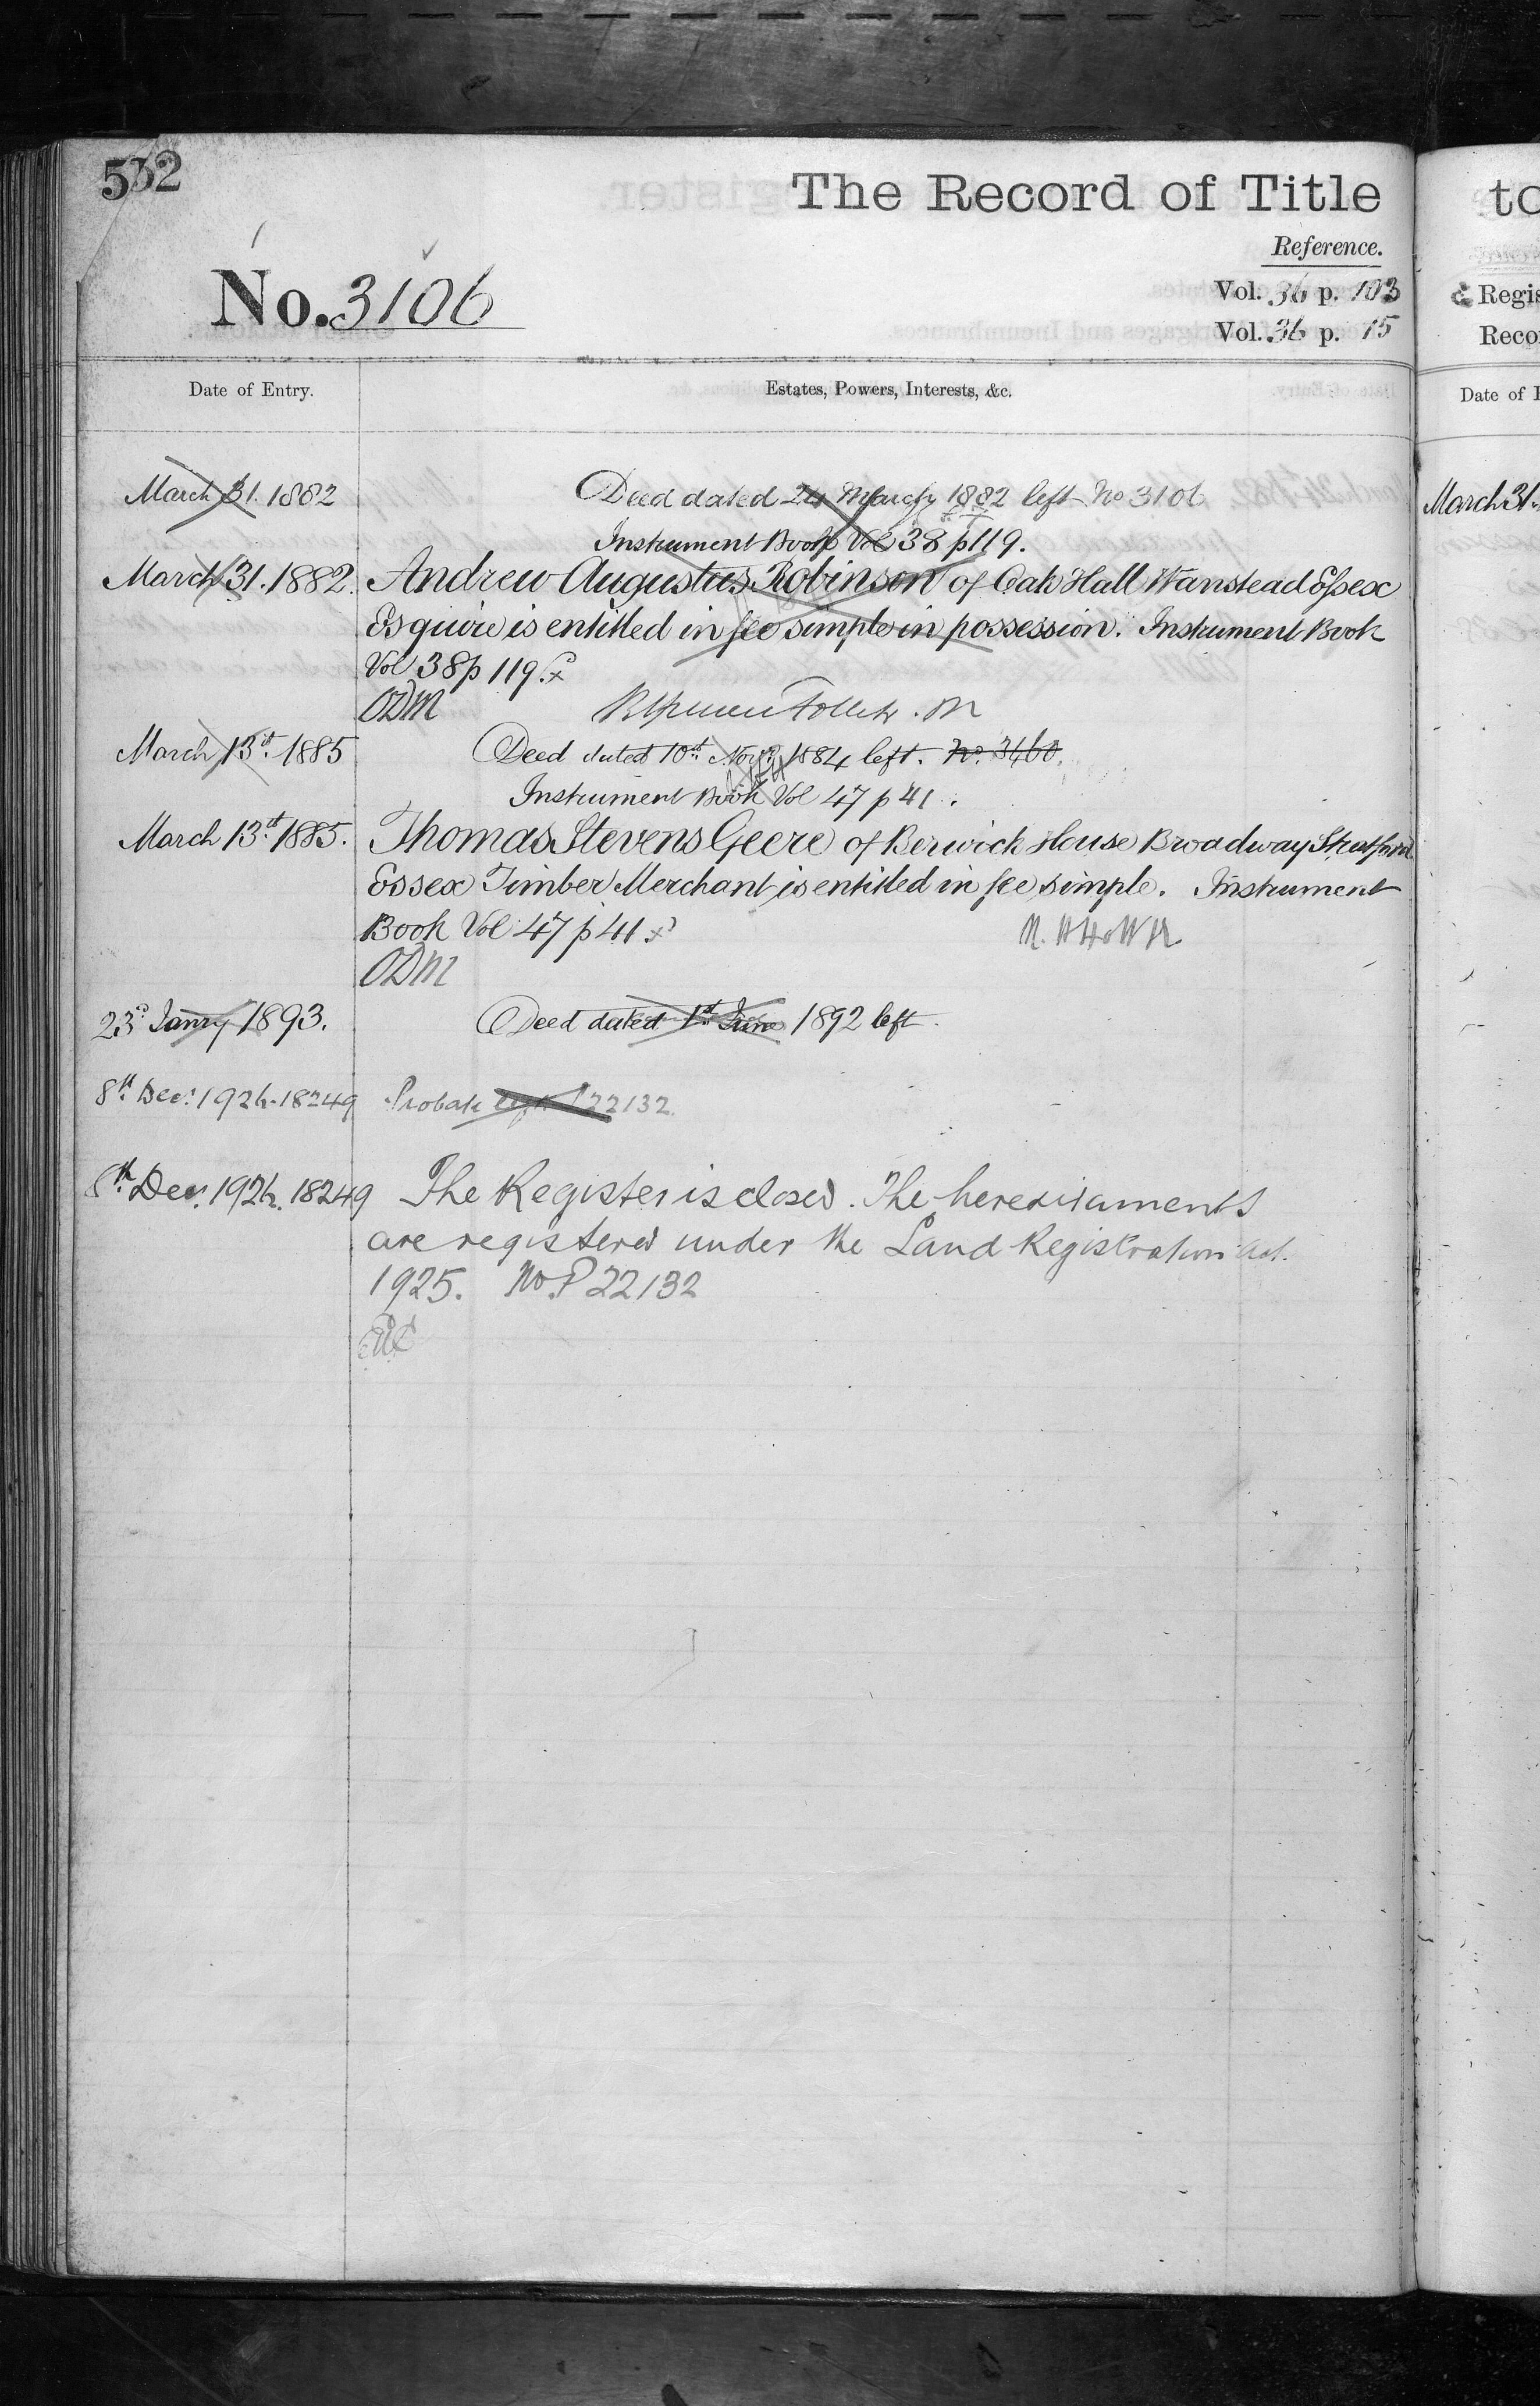 532
The Record of Title
Reference.
No. 3106
Vol. 36 p. 103
Vol. 36 p. 15
Date of Entry.
Estates, Powers, Interests, &c.
March 31. 1882
Deed dated 24 March 1882 left No 3106
Instrument Book Vol 38 p 119.
March 31. 1882.
Andrew Augustus Robinson of Oak Hall Wanstead Essex
Esquire is entitled in fee simple in possession. Instrument Book
Vol 38 p 119.
ODM
March 13th 1885
Deed dated 10th Novr 1884 left. No. 3460.
Instrument Book Vol 47 p 41.
March 13th 1885.
Thomas Stevens Geere of Berwick House Broadway Stratford
Essex Timber Merchant is entitled in fee simple. Instrument
Book Vol 47 p 41.
ODM
23rd Janry 1893.
Deed dated 1st June 1892 left.
8th Decr 1926. 18249
Probate 22132.
8th Decr 1926. 18249
The Register is closed. The hereditaments
are registered under the Land Registration Act.
1925. No. P 22132
to
Regis
Reco
Date of E
March 31